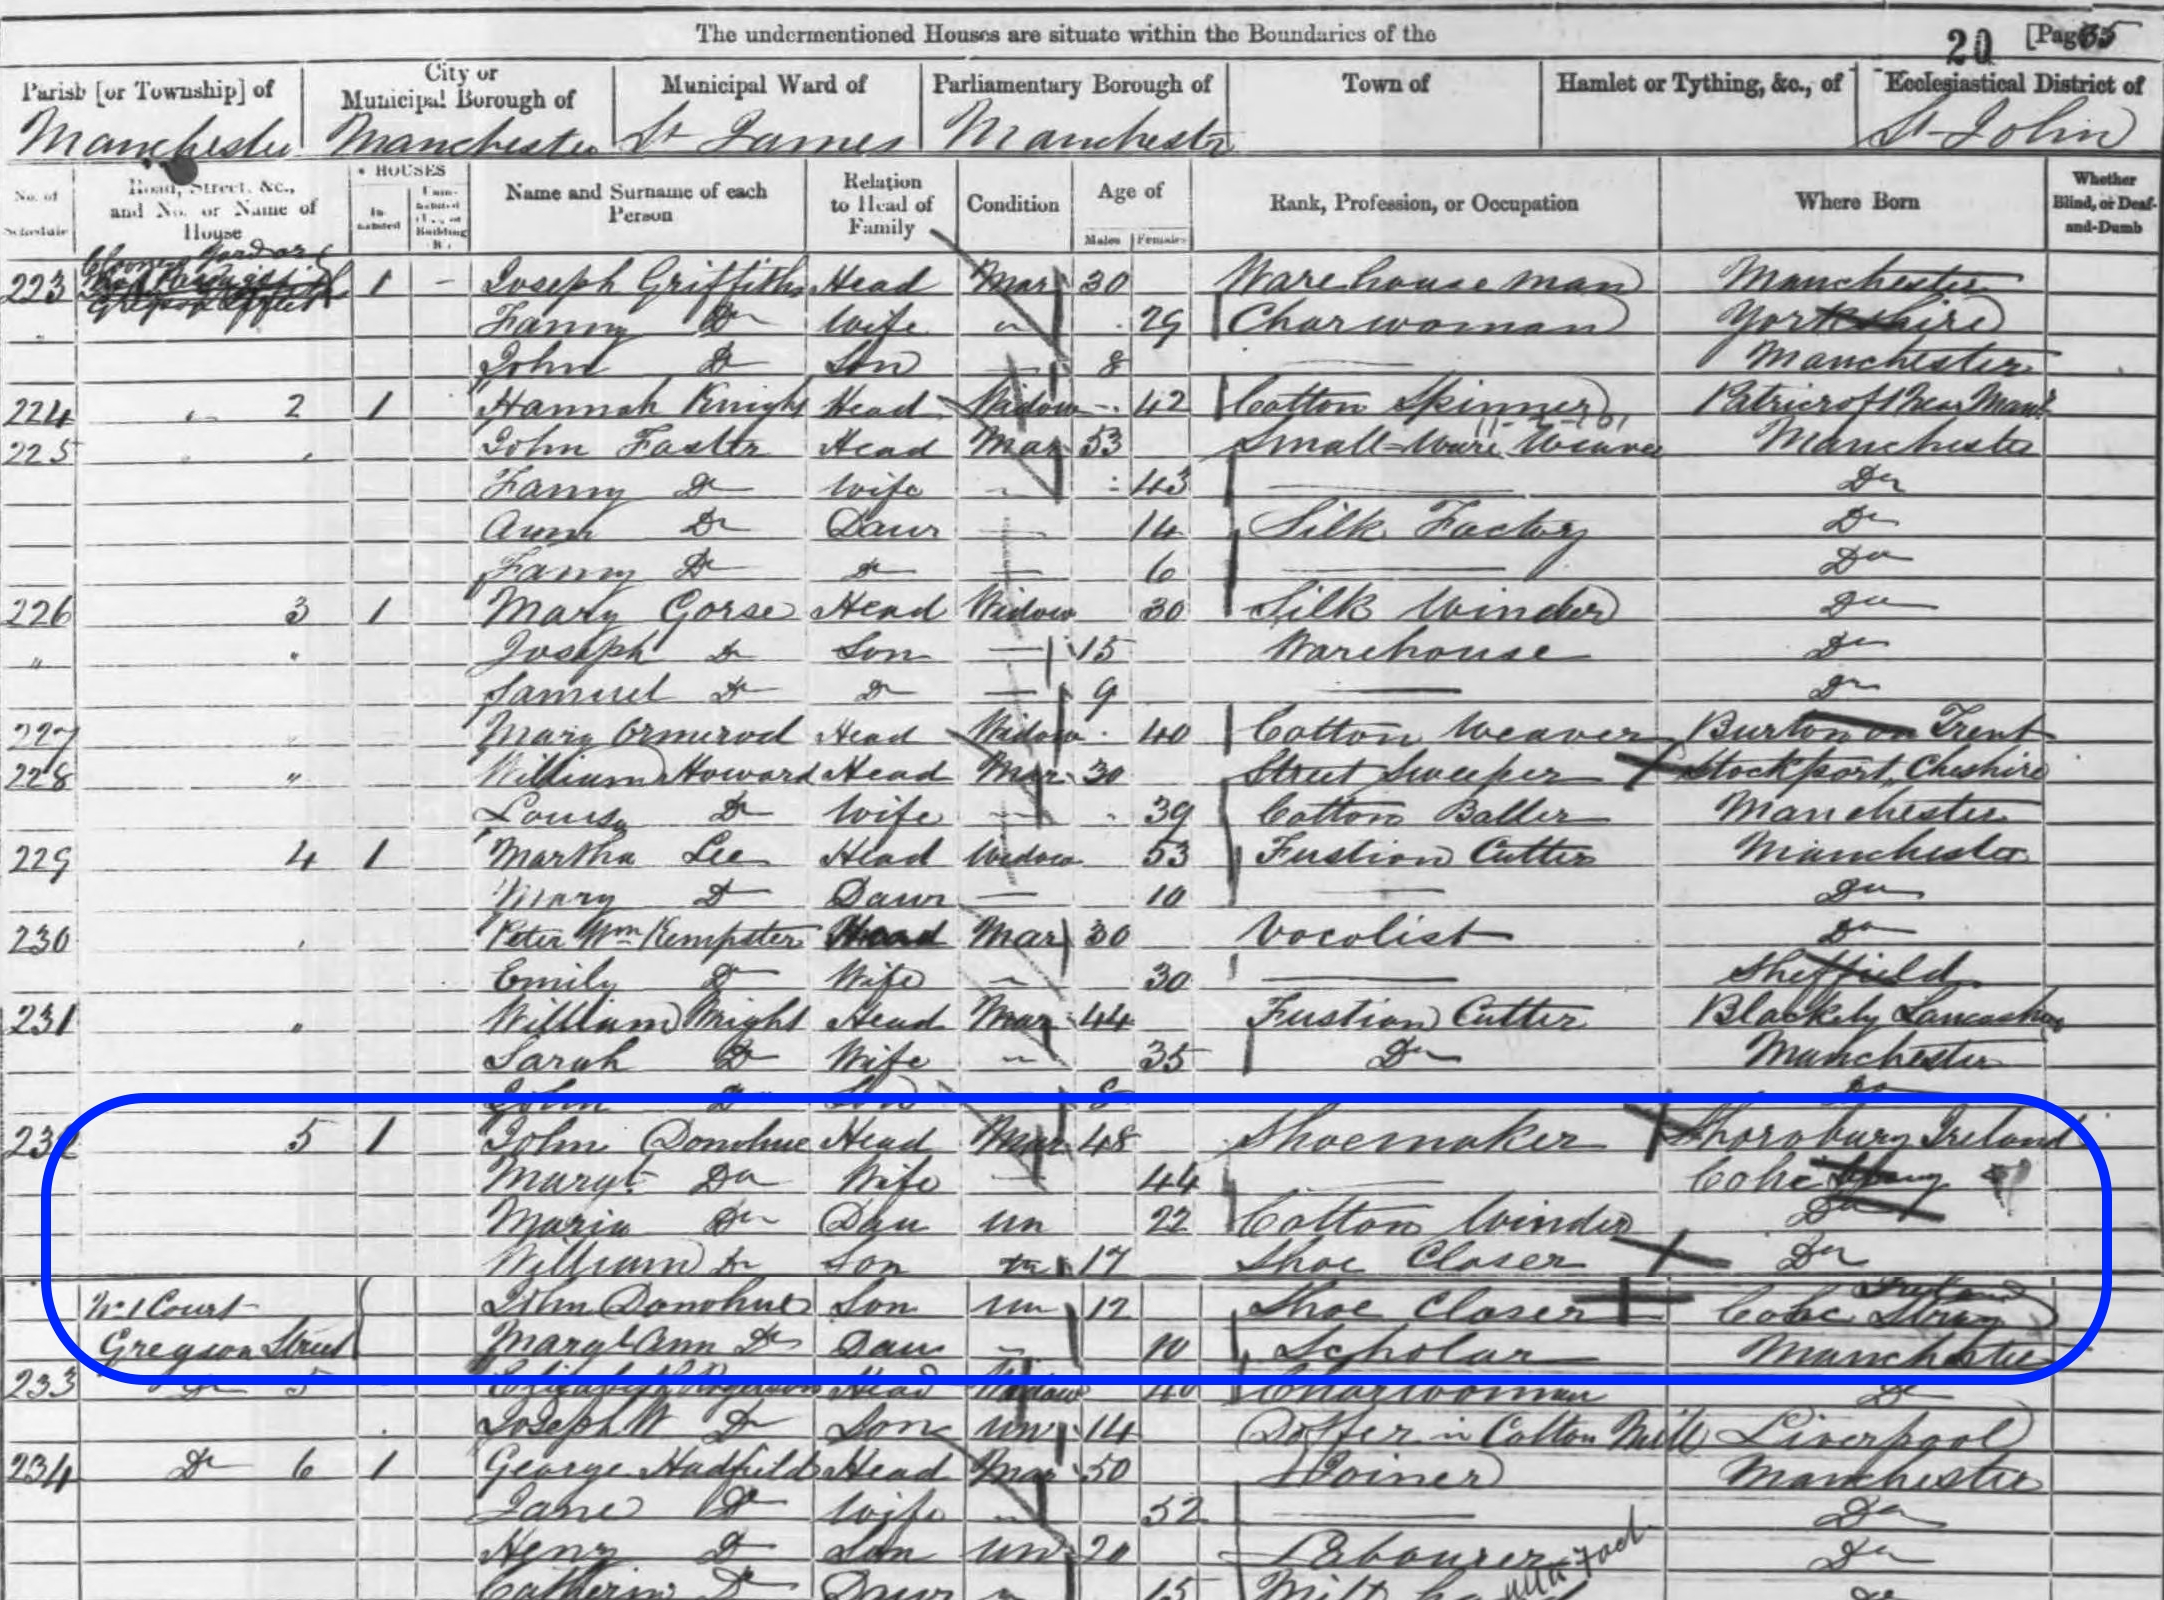 The undermentioned Houses are situate within the Boundaries of the
20 [Page 35
Parish [or Township] of
City or Municipal Borough of
Municipal Ward of
Parliamentary Borough of
Town of
Hamlet or Tything, &c., of
Ecclesiastical District of
Manchester Manchester St James Manchester St John
No. of Schedule
Road, Street, &c., and No. or Name of House
HOUSES
In-habited
Name and Surname of each Person
Relation to Head of Family
Condition
Age of
Males Females
Rank, Profession, or Occupation
Where Born
Whether Blind, or Deaf-and-Dumb
223 1 - Joseph Griffiths Head Mar 30 Warehouseman Manchester
Fanny Do Wife " 29 Charwoman Yorkshire
John Do Son — 8 — Manchester
224 " 2 1 Hannah Knight Head Widow 42 Cotton Spinner Patricroft Near Manr
225 " John Foster Head Mar 53 Small-Ware Weaver Manchester
Fanny Do Wife - 43 — Do
Ann Do Daur — 14 Silk Factory Do
Fanny Do Do — 6 — Do
226 3 1 Mary Gorse Head Widow 30 Silk Winder Do
" " Joseph Do Son — 15 Warehouse Do
Samuel Do Do — 9 — Do
227 " Mary Ormerod Head Widow 40 Cotton Weaver Burton on Trent
228 " William Howard Head Mar 30 Street Sweeper Stockport, Cheshire
Louisa Do Wife — 39 Cotton Baller Manchester
229 4 1 Martha Lee Head Widow 53 Fustion Cutter Manchester
Mary Do Daur — 10 — Do
230 " Peter Wm Kempster Head Mar 30 Vocolist Do
Emily Do Wife " 30 — Sheffield
231 " William Wright Head Mar 44 Fustion Cutter Blackely Lancashire
Sarah Do Wife " 35 Do Manchester
John Do Son 8 Do
232 5 1 John Donohue Head Mar 48 Shoemaker Ireland
Margt Do Wife — 44 —
Maria Do Dau Un 22 Cotton Winder Do
William Do Son Un 17 Shoe Closer Do
No 1 Court John Donohue Son Un 12 Shoe Closer Ireland
Gregson Street Margt Ann Do Dau " 10 Scholar Manchester
233 Do 5 Elizabeth Rogerson Head Widow 40 Charwoman Do
Joseph W Do Son Un 14 Doffer in Cotton Mill Liverpool
234 Do 6 1 George Hadfield Head Mar 50 Joiner Manchester
Jane Do Wife " 52 — Do
Henry Do Son Un 20 Labourer Do
Catherine Do Daur " 15 Do